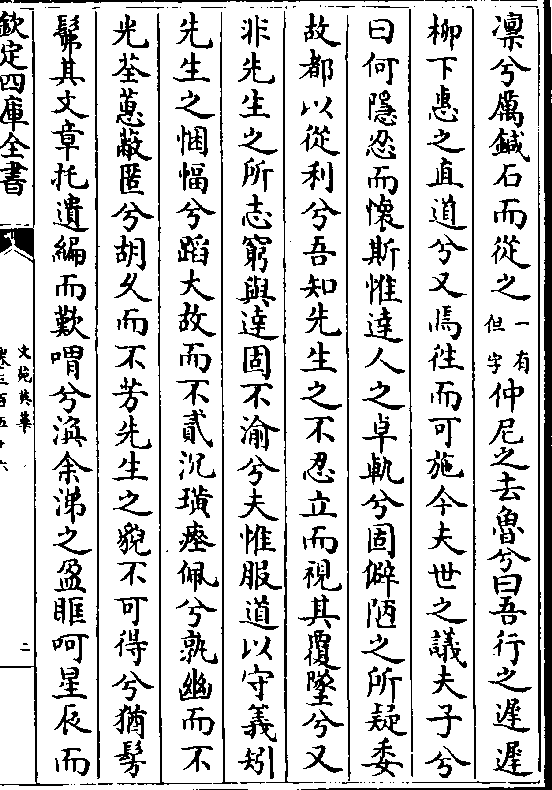 凜兮厲鍼石而從之一有但字仲尼之去魯兮曰吾行之遲遲
柳下惠之直道兮又焉往而可施今夫世之議夫子兮
曰何隱忍而懷斯惟達人之卓軌兮固僻陋之所疑委
故都以從利兮吾知先生之不忍立而視其覆墜兮又
非先生之所志窮與達固不渝兮夫惟服道以守義矧
先生之悃愊兮蹈大故而不貳沉璜瘞佩兮孰幽而不
光荃蕙蔽匿兮胡久而不芳先生之貌不可得兮猶髣
髴其文章托遺編而歎喟兮渙余涕之盈眶呵星辰而
欽定四庫全書
文苑英華
卷三百五十六
二